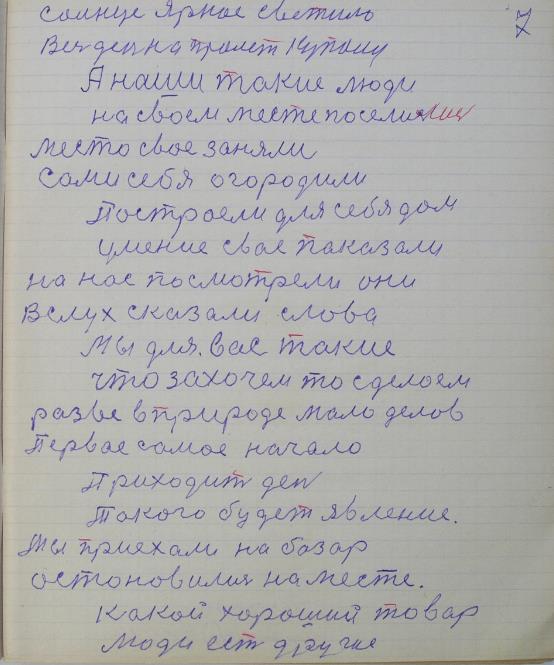 7
солнце ярное светило
Вен ден на пролет Купаху
А наши такие люди
на своем месте поселились
место свое заняли
сами себя огородили
Построели для себя дом
умение свае паказали
на нас посмотрели они
Вслух сказали слова
Мы для вас такие
что захочем то сделоем
разве в природе мало делов
Первае самое начало
Приходит ден
Такого будет явление.
Мы приехали на базар
остоновилис на месте.
какой хороший товар
люди ест другие